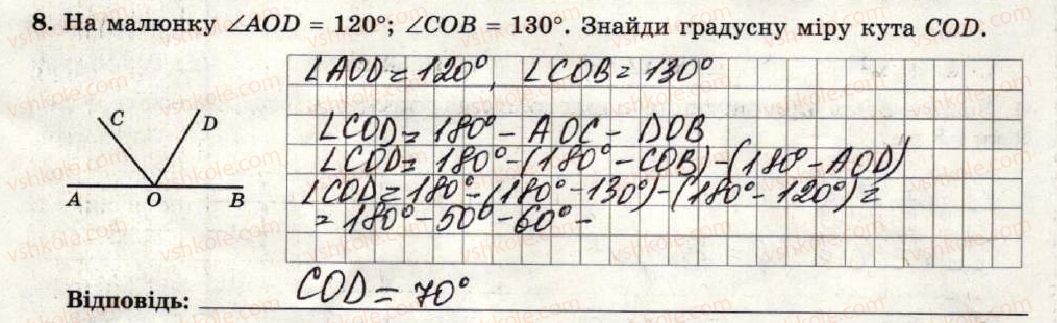 8. На малюнку ∠AOD = 120°; ∠COB = 130°. Знайди градусну міру кута COD.
∠AOD = 120°, ∠COB = 130°
∠COD = 180° - AOC - DOB
∠COD = 180° - (180° - COB) - (180° - AOD)
∠COD = 180° - (180° - 130°) - (180° - 120°) =
= 180° - 50° - 60° -
C D
A O B
Відповідь: COD = 70°